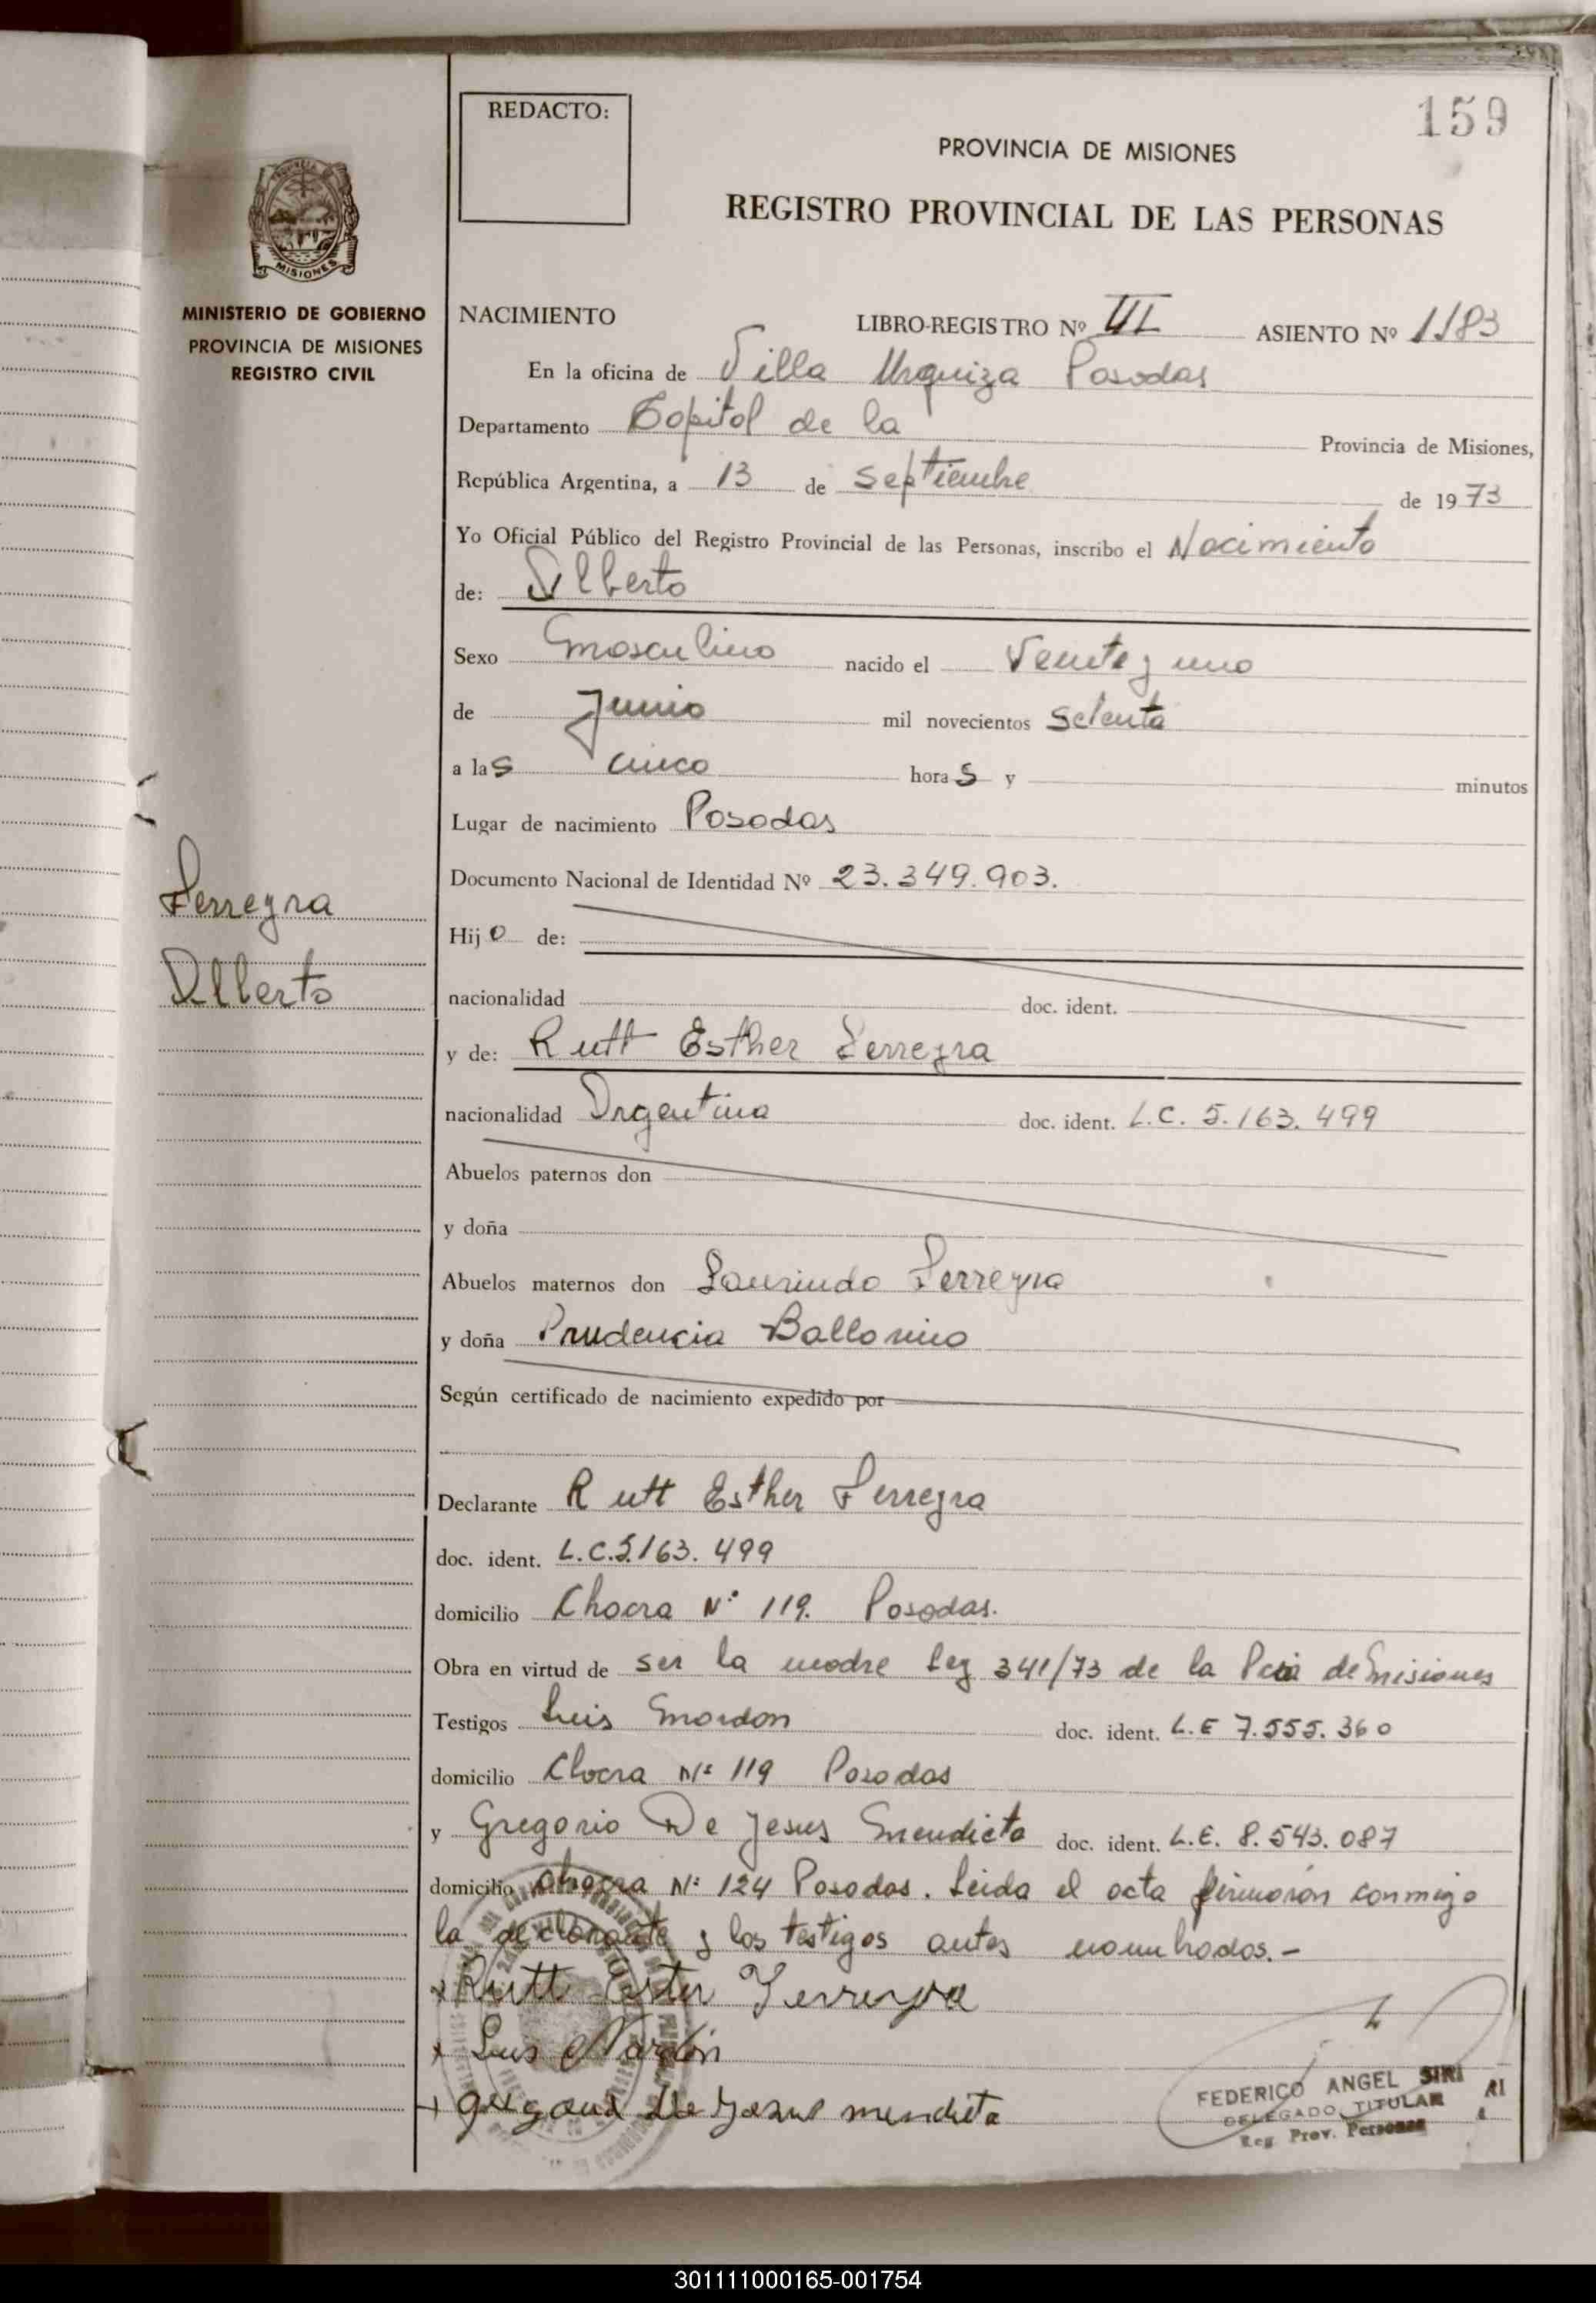 159
REDACTO:
PROVINCIA DE MISIONES
REGISTRO PROVINCIAL DE LAS PERSONAS
MISIONES
MINISTERIO DE GOBIERNO
PROVINCIA DE MISIONES
REGISTRO CIVIL
NACIMIENTO LIBRO-REGISTRO Nº ASIENTO Nº 1183
En la oficina de Villa Urquiza Posadas
Departamento Capital de la Provincia de Misiones,
República Argentina, a 13 de Septiembre de 1973
Yo Oficial Público del Registro Provincial de las Personas, inscribo el Nacimiento
de: Alberto
Sexo Masculino nacido el Veinte y uno
de Junio mil novecientos Setenta
a las cinco horas y minutos
Lugar de nacimiento Posadas
Documento Nacional de Identidad Nº 23.349.903.
Ferreyra
Alberto
Hijo de:
nacionalidad doc. ident.
y de: Rutt Esther Ferreyra
nacionalidad Argentina doc. ident. L.C. 5.163.499
Abuelos paternos don
y doña
Abuelos maternos don Laurindo Ferreyra
y doña Prudencia Ballorino
Según certificado de nacimiento expedido por
Declarante Rutt Esther Ferreyra
doc. ident. L.C.5.163.499
domicilio Chacra Nº 119. Posadas.
Obra en virtud de ser la madre Ley 341/73 de la Pcia de Misiones
Testigos Luis Mardon doc. ident. L.E 7.555.360
domicilio Chacra Nº 119 Posadas
y Gregorio De Jesus Mendieta doc. ident. L.E. 8.543.087
domicilio chacra Nº 124 Posadas. Leida el acta firmaron conmigo
la declarante y los testigos antes nombrados.-
x Rutt Ester Ferreyra
x Luis Mardón
+ De Jesus mendieta
FEDERICO ANGEL SIRI
DELEGADO TITULAR
Reg. Prov. Personas
301111000165-001754